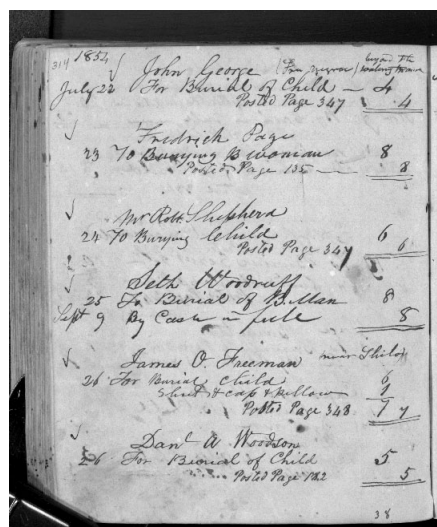 314 1854
John George (Fr. negroe) beyond the
July 22 For Burial of Child — 4
Posted Page 347 4
Fredrick Page
23 To Burying B woman 8
Posted Page 135 — 8
Mr Robt Shepherd
24 To Burying Child 6
Posted Page 347 6
Seth Woodruff
25 To Burial of B. Man 8
Sept 9 By Cash in full 8
James O. Freeman near Shiloh
26 For Burial Child 6
Shroud & cap & Pillow 1
Posted Page 348 7 7
Danl A Woodson
26 For Burial of Child 5
Posted Page 182 5
38